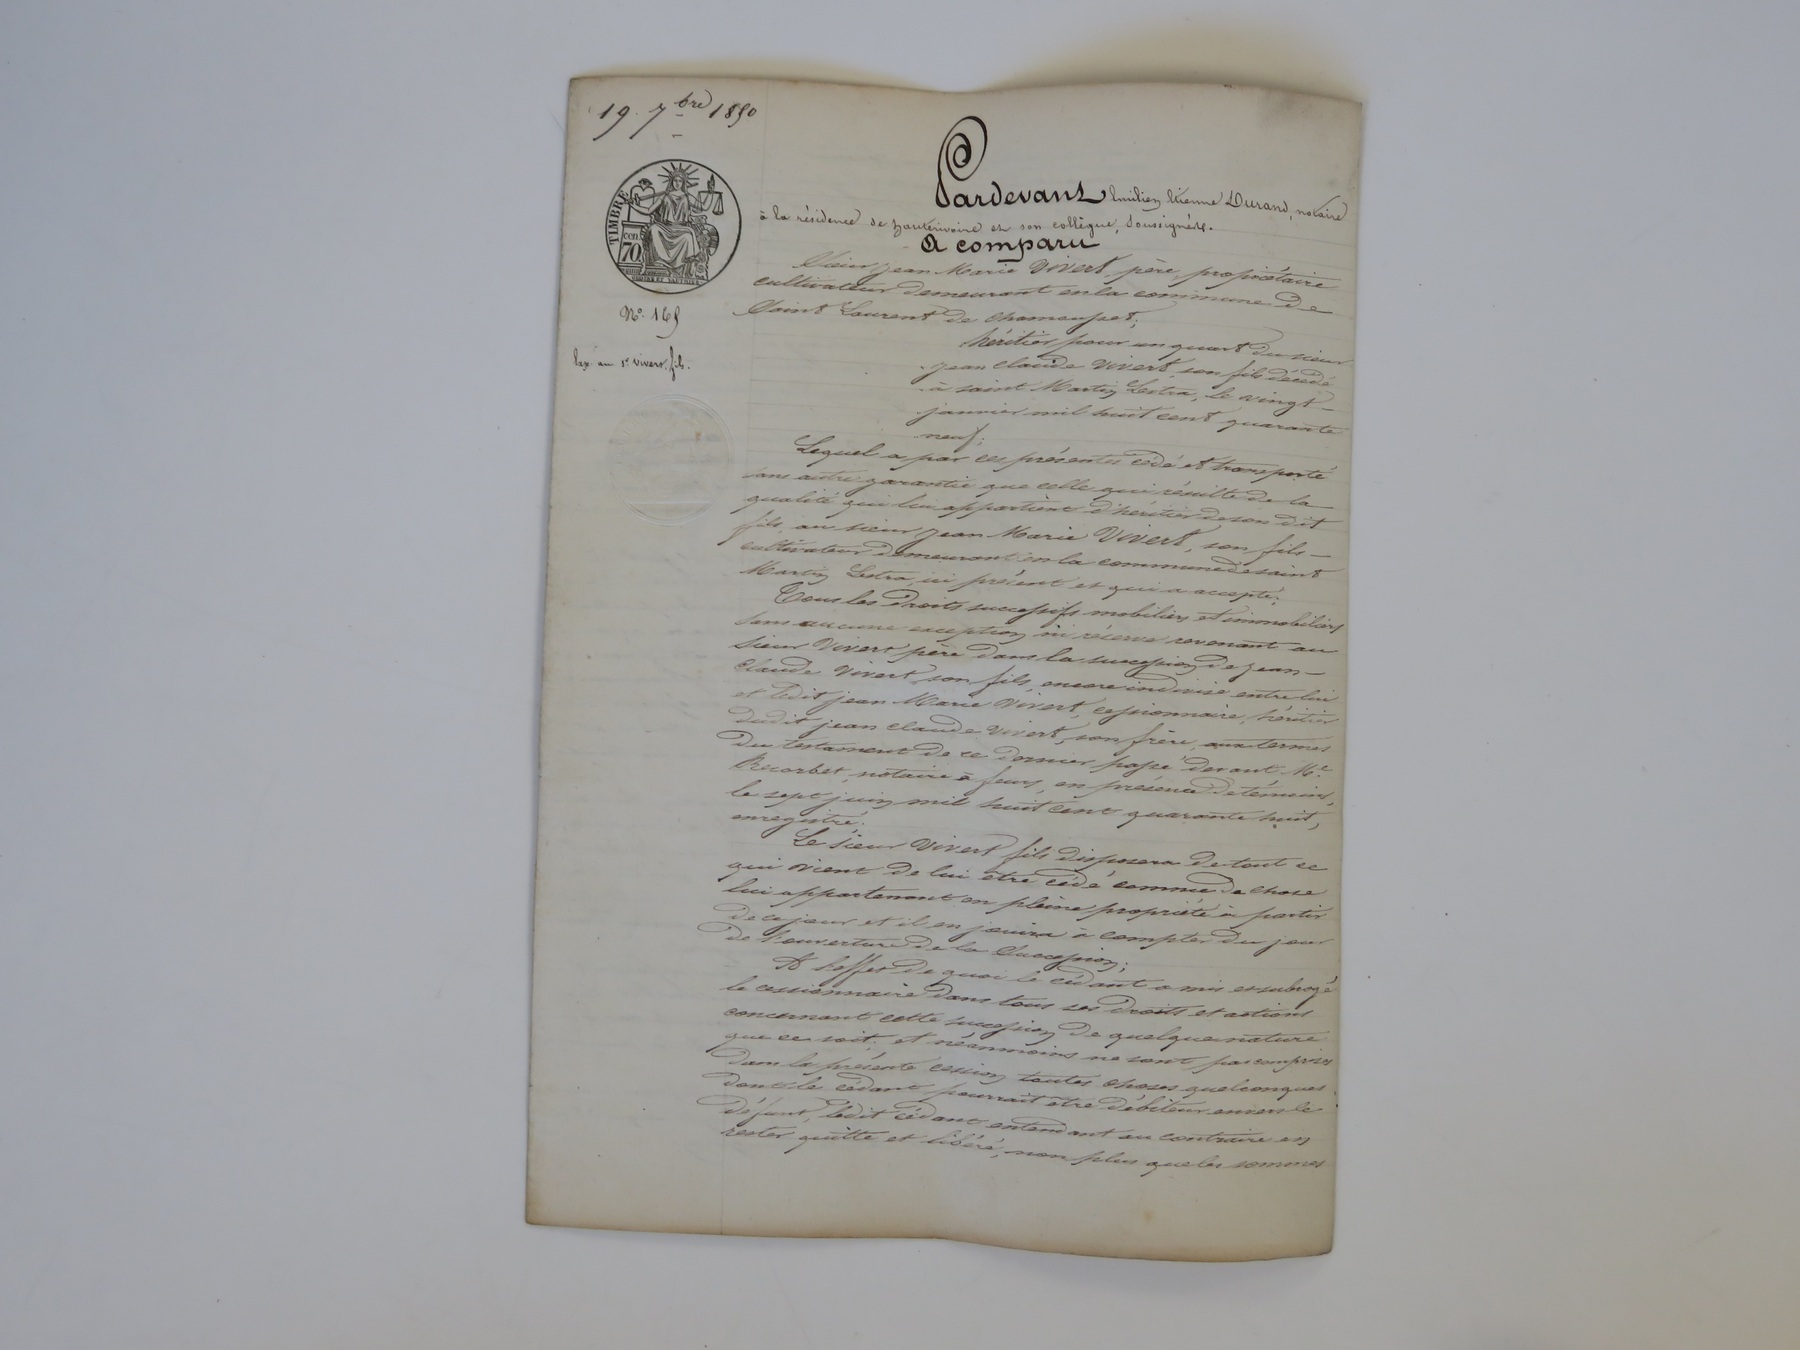 19 7bre 1850
Pardevant Emilien Etienne Durand, notaire
à la résidence de hauterivoire et son collègue, soussignés.
A comparu
TIMBRE
cen.
70
No. 165
Sieur jean Marie Vivert père, propriétaire
cultivateur demeurant en la commune de
Saint Laurent de chamousset;
Exp. au Sr vivert fils.
héritier pour un quart du sieur
jean claude Vivert, son fils décédé
à saint Martin Lestra, le vingt
janvier mil huit cent quarante
neuf;
Lequel a par ces présentes cédé et transporté
sans autre garantie que celle qui résulte de la
qualité qui lui appartient d'héritier de son dit
fils, au sieur jean Marie Vivert, son fils
cultivateur demeurant en la commune de saint
Martin Lestra, ici présent et qui a accepté;
Tous les droits successifs mobiliers et immobiliers
sans aucune exception ni réserve revenant au
sieur Vivert père dans la succession de jean
claude Vivert son fils, encore indivise entre lui
et ledit jean Marie Vivert, cessionnaire, héritier
dudit jean claude Vivert, son frère, aux termes
du testament de ce dernier passé devant Me
Recorbet, notaire à feurs, en présence de témoins,
le sept juin mil huit cent quarante huit,
enregistré.
Le sieur Vivert fils disposera de tout ce
qui vient de lui être cédé comme de chose
lui appartenant en pleine propriété à partir
de ce jour et il en jouira à compter du jour
de l'ouverture de la succession;
A l'effet de quoi le cédant a mis et subrogé
le cessionnaire dans tous ses droits et actions
concernant cette succession de quelque nature
que ce soit; et néanmoins ne sont pas comprises
dans la présente cession toutes choses quelconques
dont le cédant pourrait être débiteur envers le
défunt, ledit cédant entendant au contraire en
rester quitte et libéré, non plus que les sommes